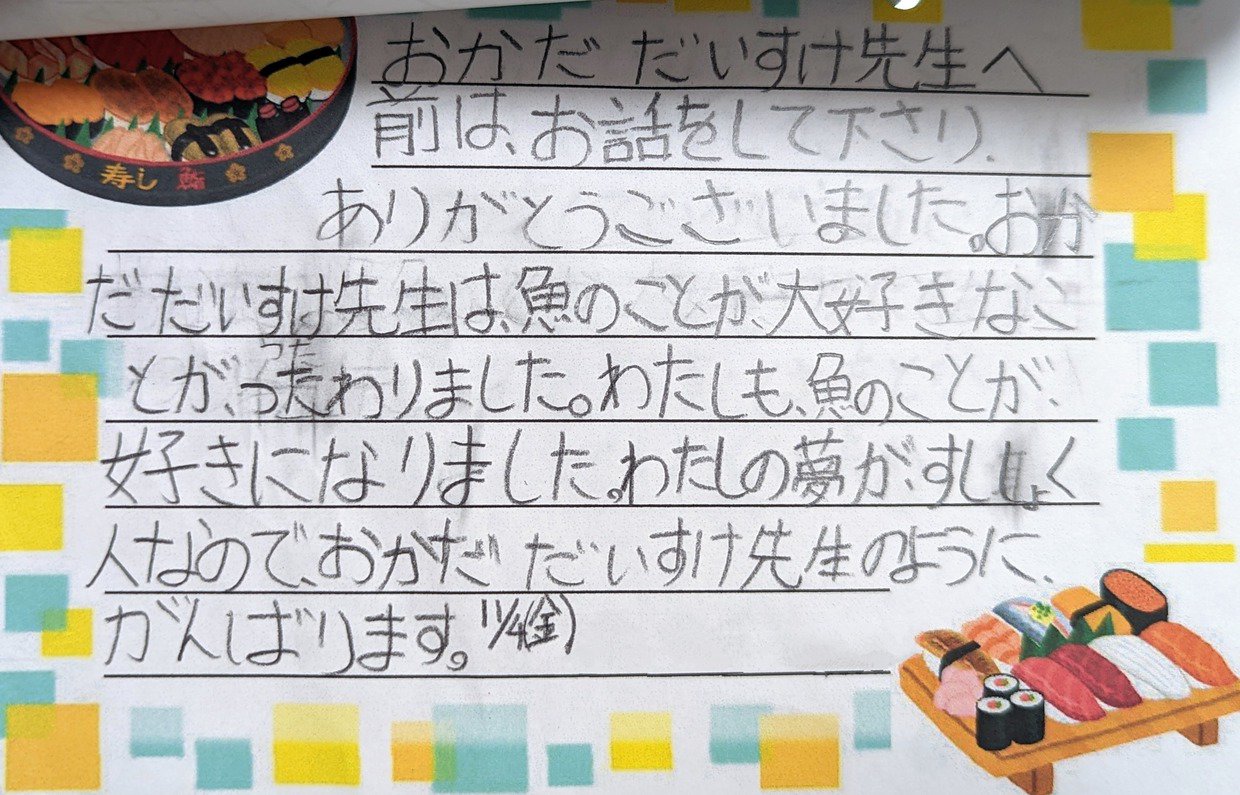 寿し 鮨
おかだ だいすけ先生へ
前は、お話をして下さり、
ありがとうございました。おか
だ だいすけ先生は、魚のことが、大好きなこ
とが、つたわりました。わたしも、魚のことが、
つた
好きになりました。わたしの夢が、すししょく
人なので、おかだ だいすけ先生のように、
がんばります。11/4(金)